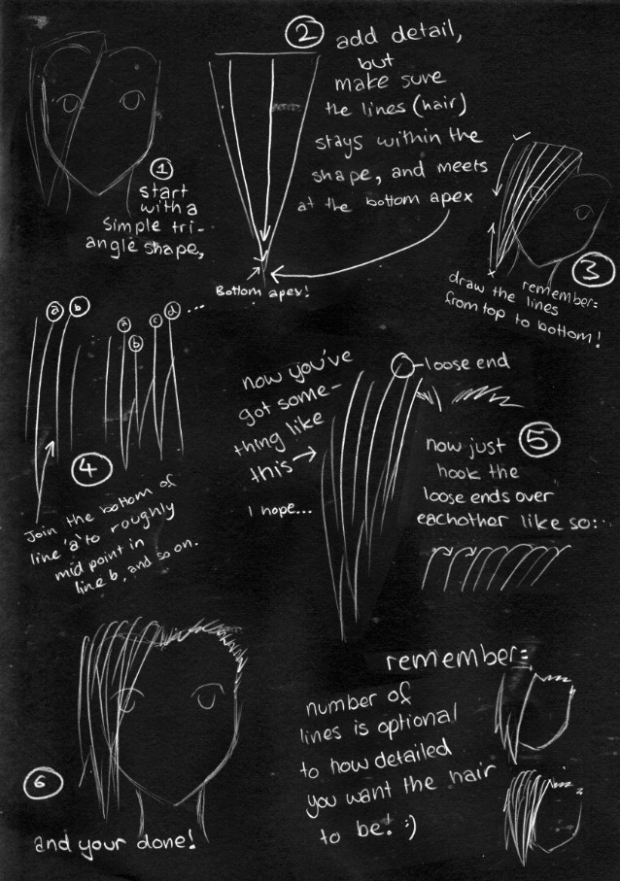 1
start
with a
simple tri-
angle shape,
2
add detail,
but
make sure
the lines (hair)
stays within the
shape, and meets
at the bottom apex
Bottom apex!
3
remember:
draw the lines
from top to bottom!
a b
a b c d ...
4
Join the bottom of
line 'a' to roughly
mid point in
line b, and so on.
now you've
got some-
thing like
this →
I hope...
loose end
5
now just
hook the
loose ends over
eachother like so:
6
and your done!
remember:
number of
lines is optional
to how detailed
you want the hair
to be! :)